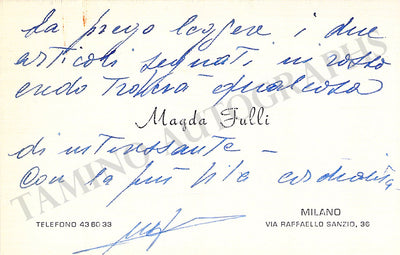 La prego leggere i due
articoli segnati in rosso
credo troverà qualcosa
Magda Fulli
di interessante –
Con la più cordialità
MILANO
TELEFONO 43 60 33
VIA RAFFAELLO SANZIO, 36
TAMINO AUTOGRAPHS